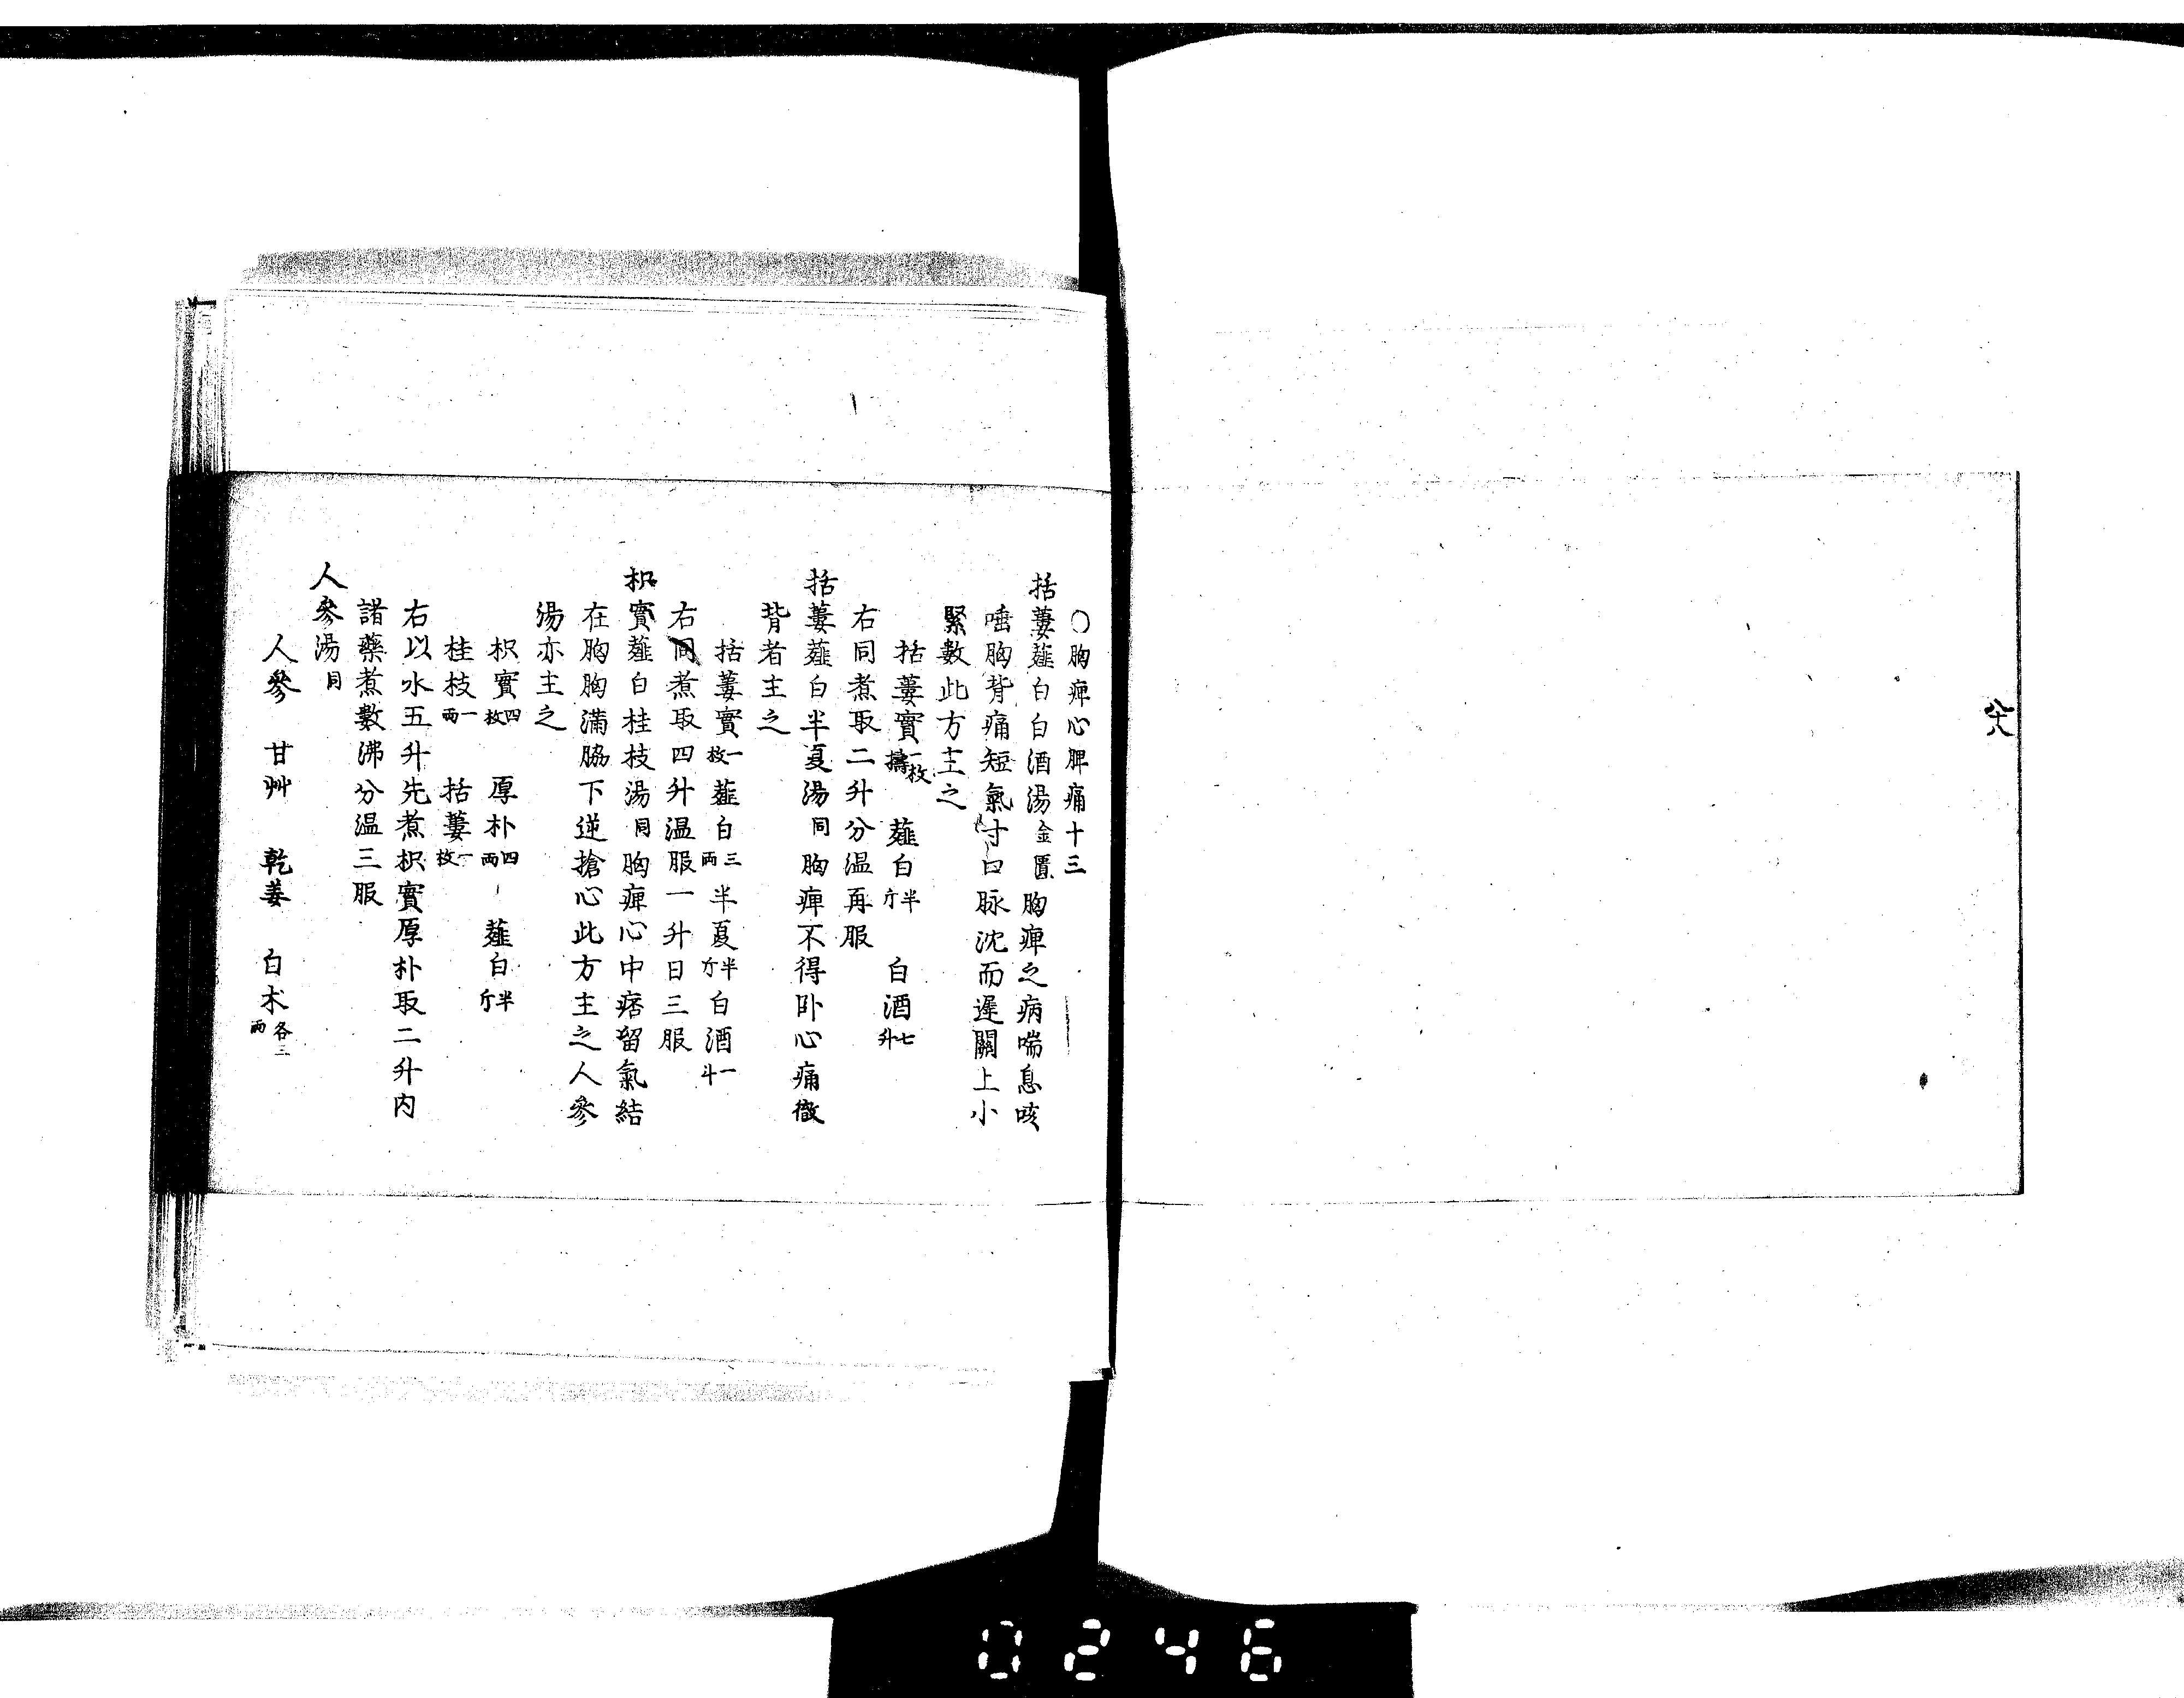 八十八
○胸痺心脾痛十三
括蔞薤白白酒湯金匱胸痺之病喘息咳
唾胸背痛短氣寸口脉沈而遲關上小
緊數此方主之
括蔞實一枚擣 薤白半斤 白酒七升
右同煮取二升分温再服
括蔞薤白半夏湯同胸痺不得卧心痛徹
背者主之
括蔞實一枚薤白三兩半夏半斤白酒一斗
右同煮取四升温服一升日三服
枳實薤白桂枝湯同胸痺心中痞留氣結
在胸胸滿脇下逆搶心此方主之人參
湯亦主之
枳實四枚 厚朴四兩 薤白半斤
桂枝一兩 括蔞一枚
右以水五升先煮枳實厚朴取二升内
諸藥煮數沸分温三服
人參湯同
人參 甘艸 乾姜 白朮各三兩
0246